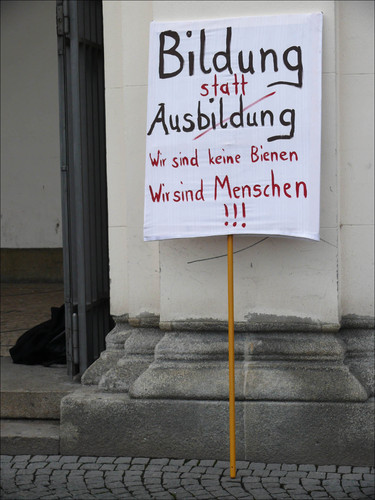 Bildung
statt
Ausbildung
Wir sind keine Bienen
Wir sind Menschen
!!!